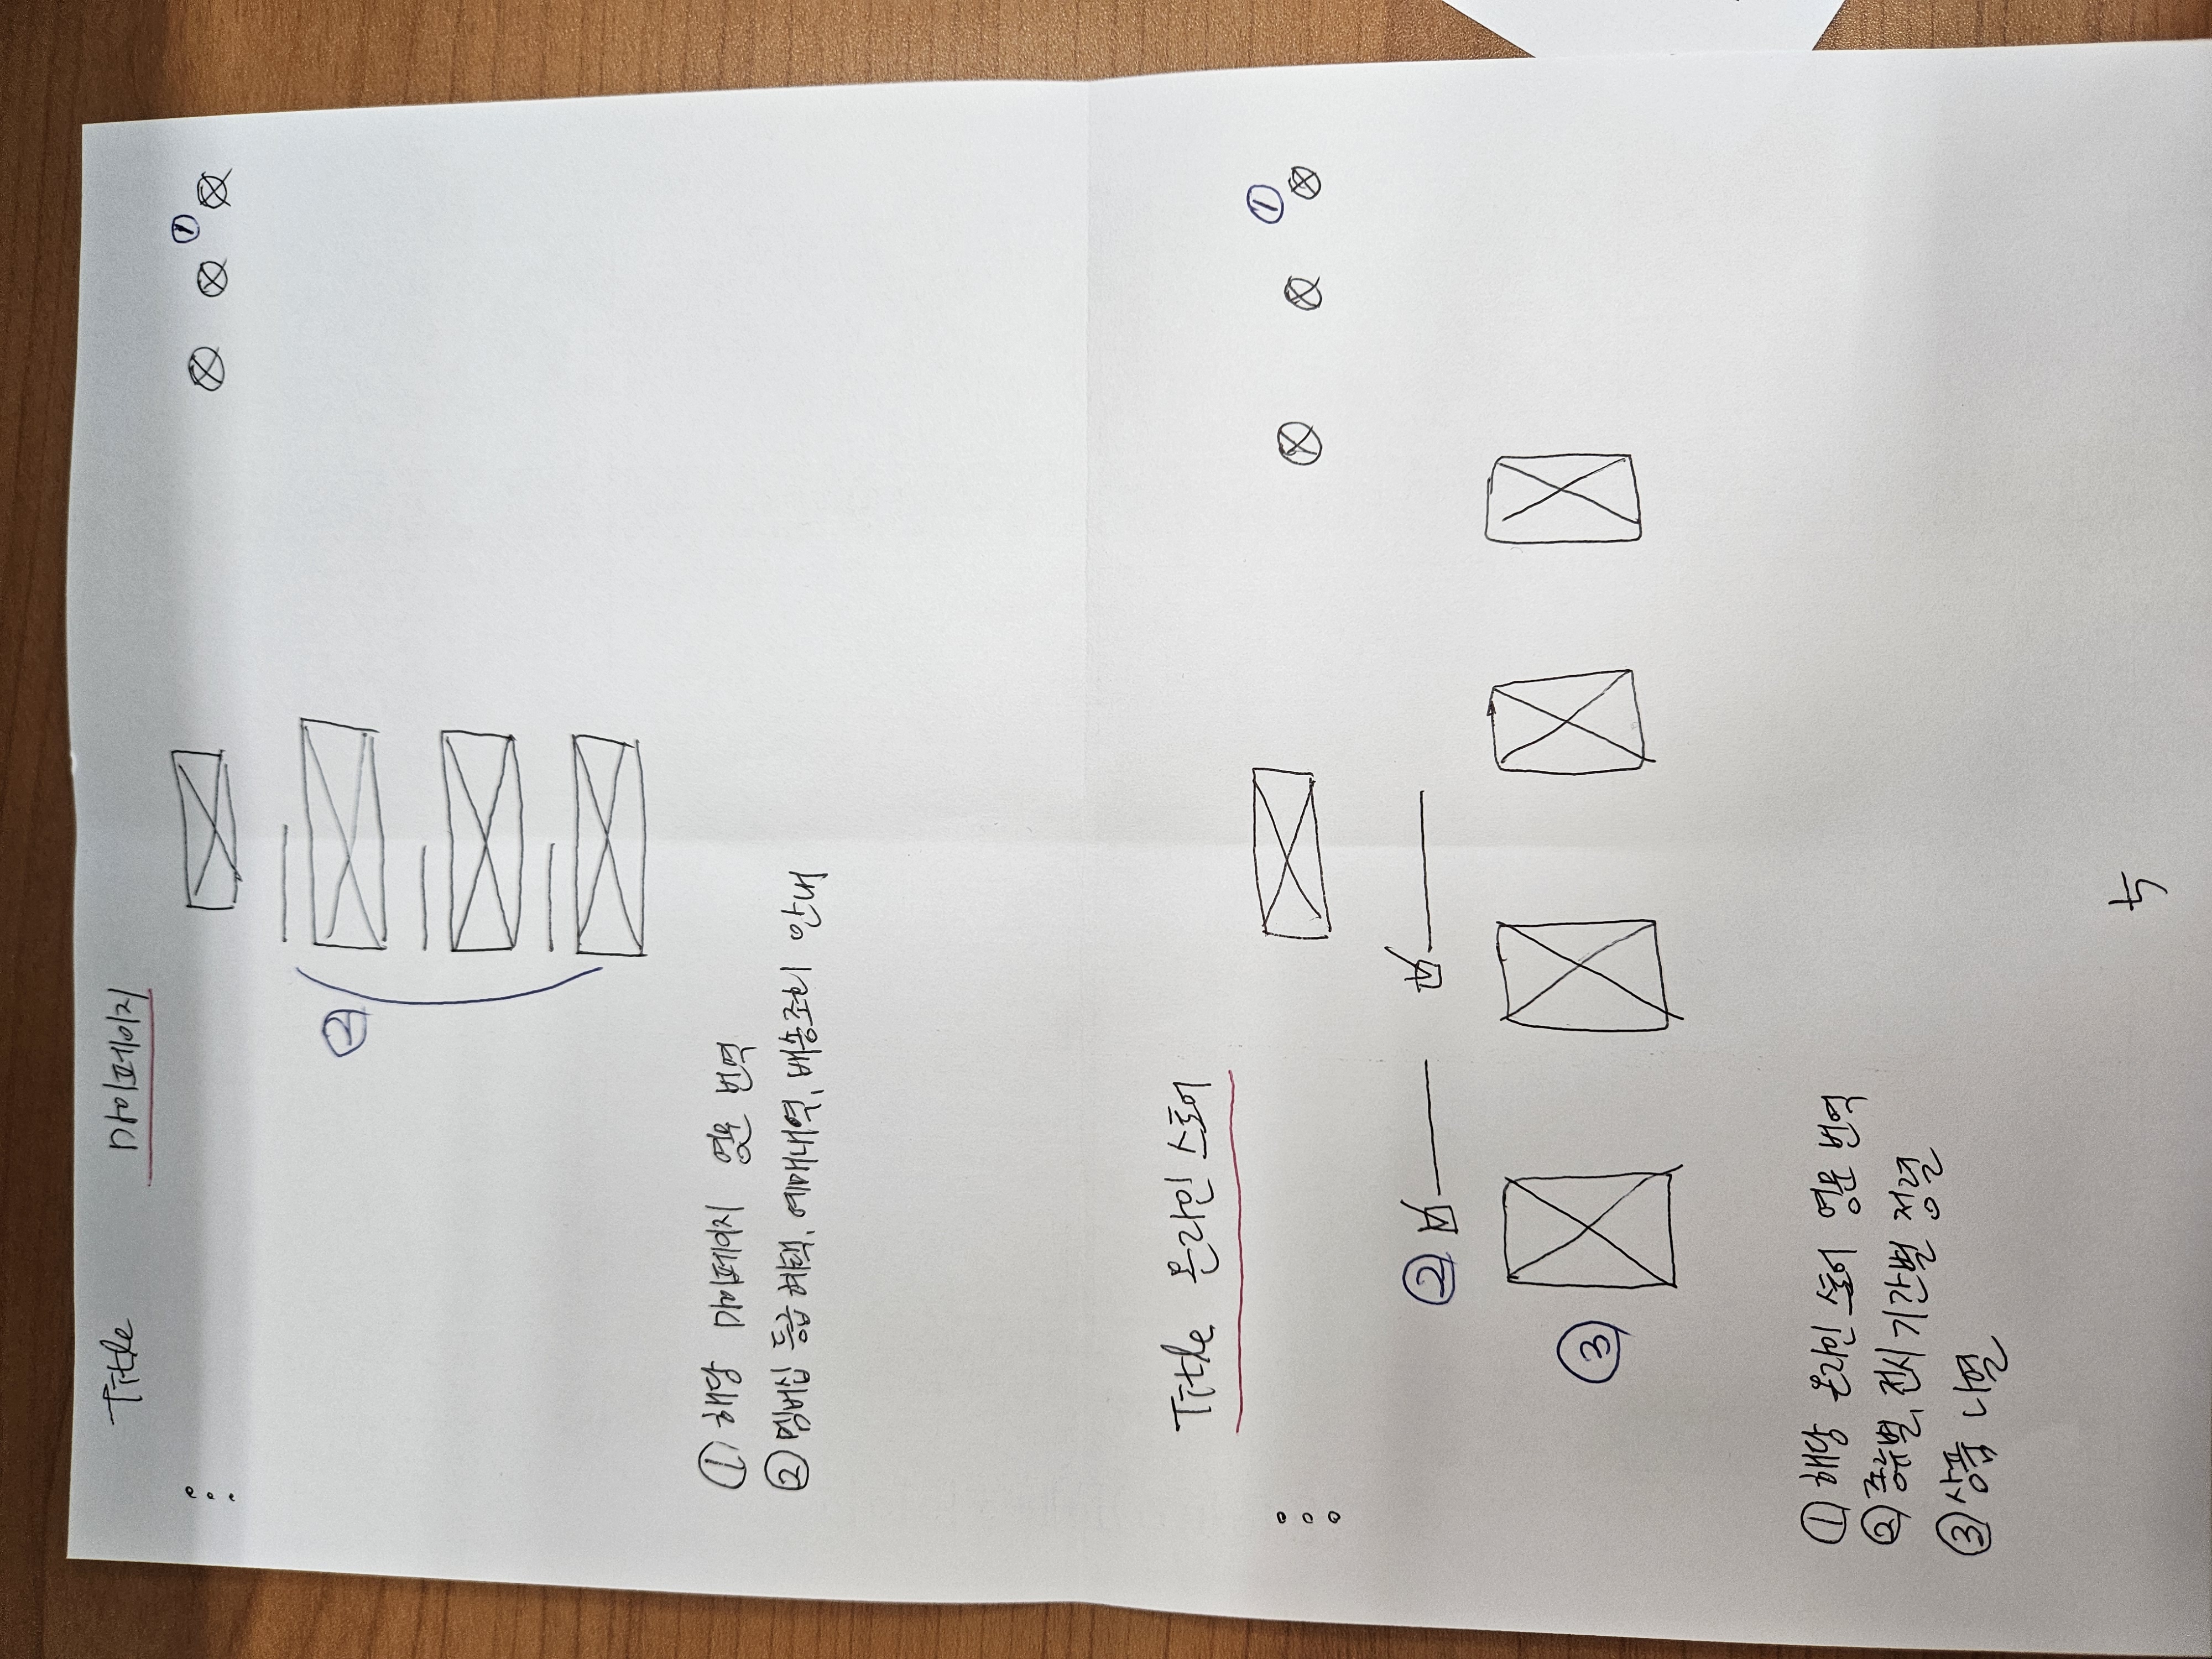 Title 마이페이지
①
②
① 해당 마이페이지 영문 번역
② 멤버십 등급 혜택, 예매내역, 배송조회 안내
Title 온라인 스토어
①
②
③
① 해당 온라인 스토어 영문 번역
② 종류별, 전시 기간별 정렬
③ 상품 나열
5